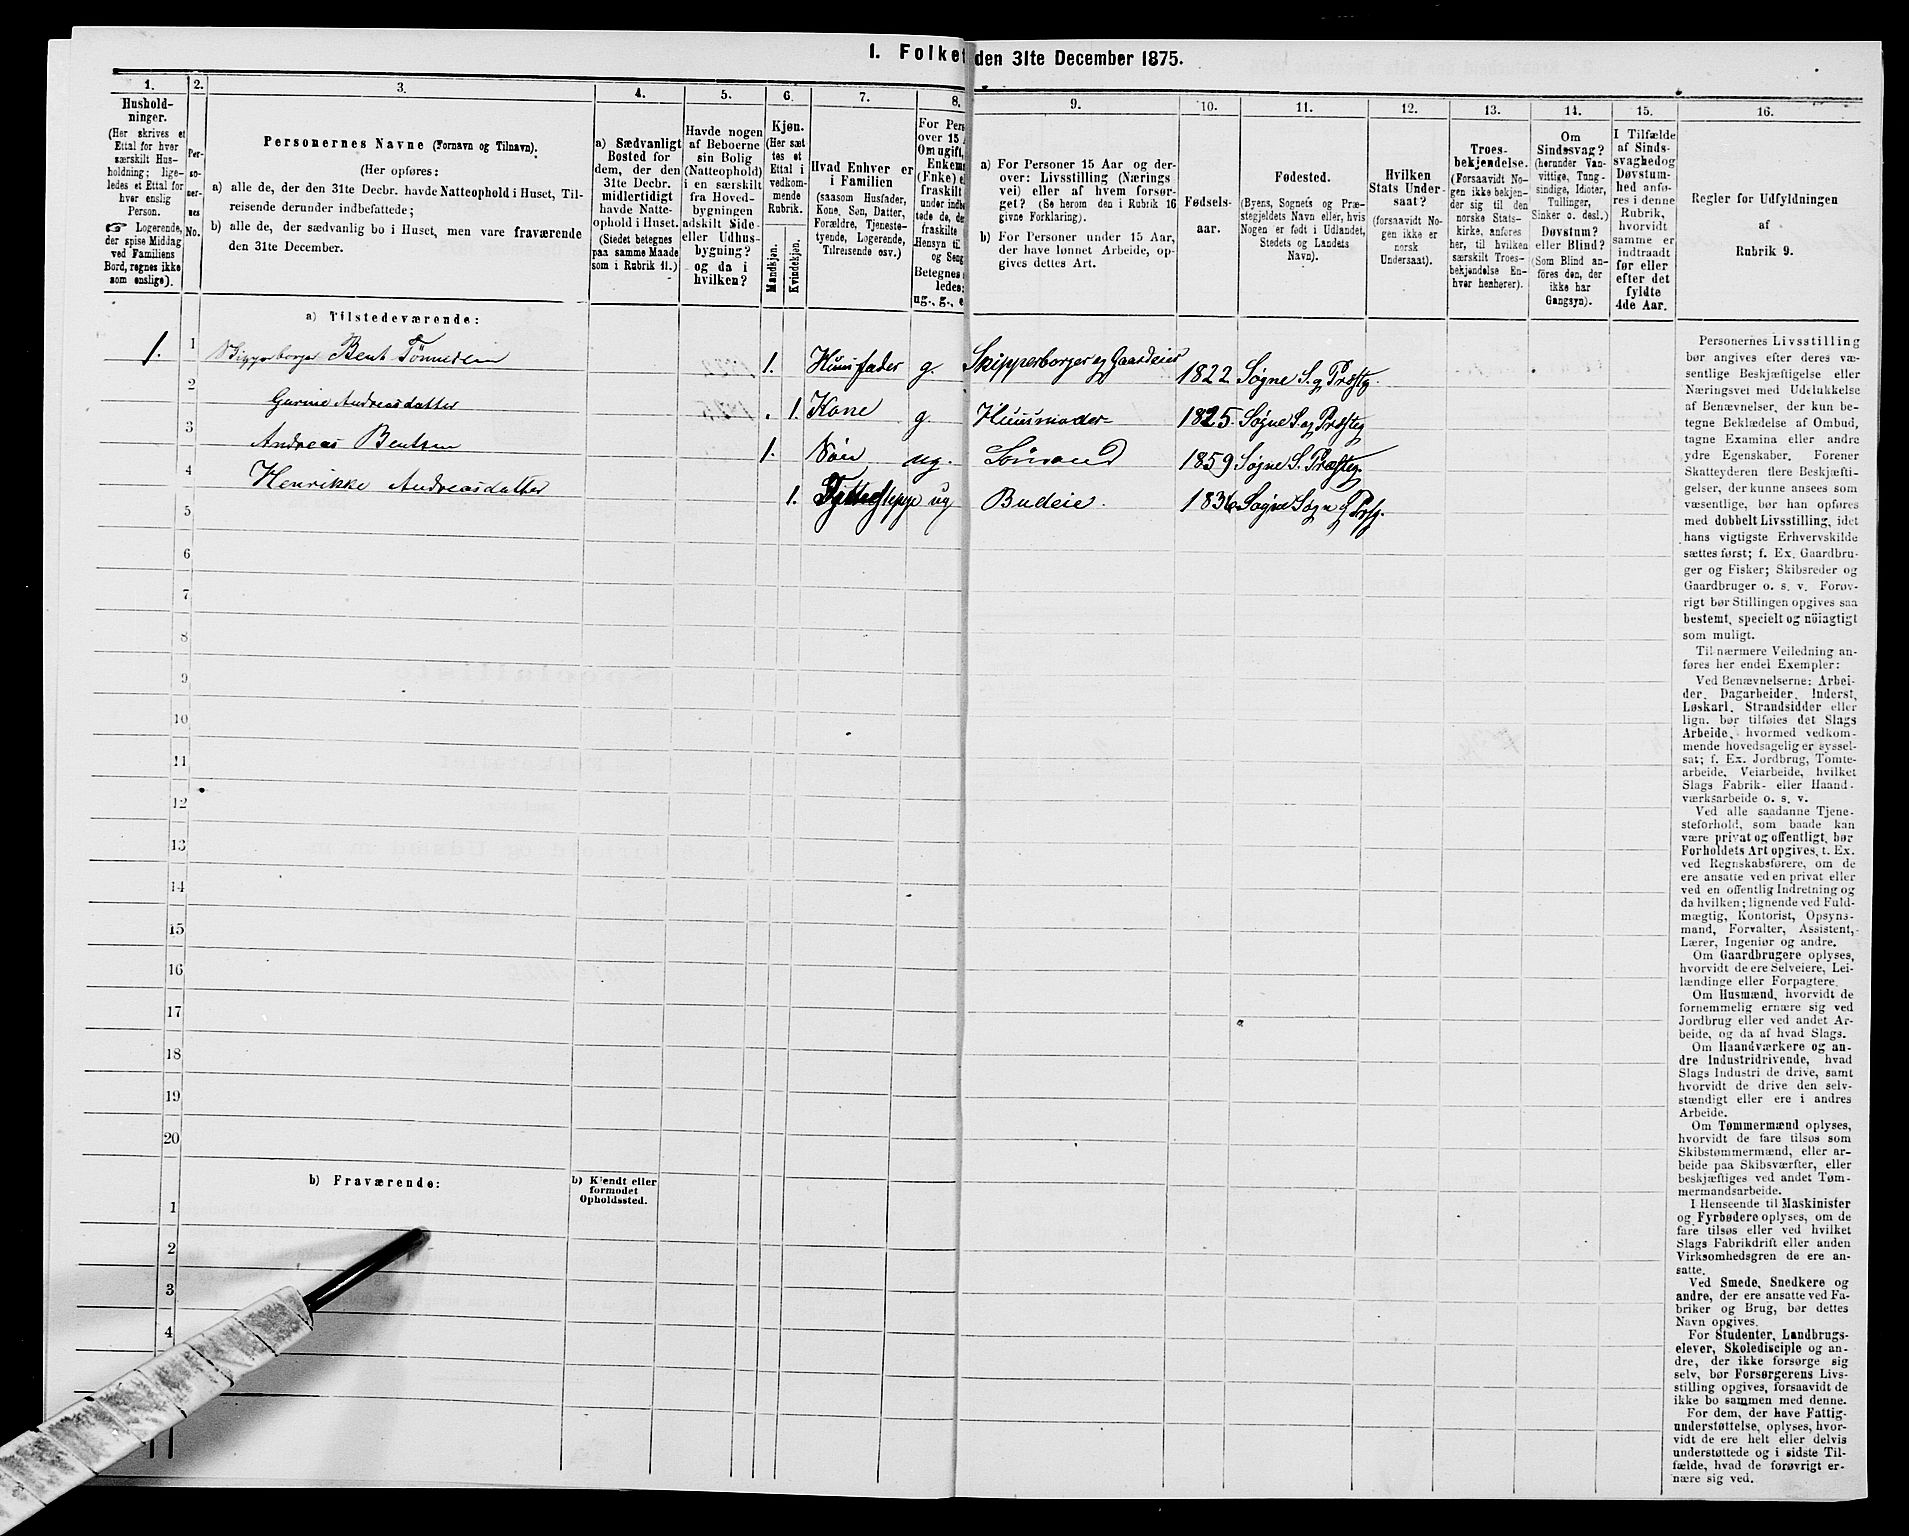 I. Folket den 31te December 1875.
1.
Hushold-
ninger.
(Her skrives et
Ettal for hver
særskilt Hus-
holdning; lige-
ledes et Ettal for
hver enslig
Person.
☞ Logerende,
der spise Middag
ved Familiens
Bord, regnes ikke
som enslige).
2.
Per-
so-
ner-
nes
No.
3.
Personernes Navne (Fornavn og Tilnavn).
(Her opføres:
a) alle de, der den 31te Decbr. havde Natteophold i Huset, Til-
reisende derunder indbefattede;
b) alle de, der sædvanlig bo i Huset, men vare fraværende
den 31te December.
4.
a) Sædvanligt
Bosted for
dem, der den
31te Decbr.
midlertidigt
havde Natte-
ophold i Huset.
(Stedet betegnes
paa samme Maade
som i Rubrik 11.)
5.
Havde nogen
af Beboerne
sin Bolig
(Natteophold)
i en særskilt
fra Hoved-
bygningen
adskilt Side-
eller Udhus-
bygning?
og da i
hvilken?
6.
Kjøn.
(Her sæt
tes et
Ettal i
vedkom-
mende
Rubrik.
Mandkjøn.
Kvindekjøn.
7.
Hvad Enhver er
i Familien
(saasom Husfader,
Kone, Søn, Datter,
Forældre, Tjeneste-
tyende, Logerende,
Tilreisende osv.)
8.
For Pers
over 15 A
Om ugift,
Enkem
(Fnke) e
fraskilt
under indbe
tede de, de
fraskilte
Hensyn til
og Seng
Betegnes
ledes:
ug., g., e
9.
a) For Personer 15 Aar og der-
over: Livsstilling (Nærings
vei) eller af hvem forsør-
get? (Se herom den i Rubrik 16
givne Forklaring).
b) For Personer under 15 Aar,
der have lønnet Arbeide, op-
gives dettes Art.
10.
Fødsels-
aar.
11.
Fødested.
(Byens, Sognets og Præ-
stegjeldets Navn eller, hvis
Nogen er født i Udlandet,
Stedets og Landets
Navn).
12.
Hvilken
Stats Under-
saat?
(forsaavidt No-
gen ikke er
norsk
Undersaat).
13.
Troes-
bekjendelse.
(Forsaavidt No-
gen ikke bekjen-
der sig til den
norske Stats-
kirke, anføres
her, til hvilken
særskilt Troes-
bekjendelse En-
hver henhører).
14.
Om
Sindssvag?
(herunder Van-
vittige, Tung-
sindige, Idioter,
Tullinger,
Sinker o. desl.)
Døvstum?
eller Blind?
(Som Blind an-
føres den, der
ikke har
Gangsyn).
15.
I Tilfælde
af Sinds-
svaghed og
Døvstum-
hed anfø-
res i denne
Rubrik,
hvorvidt
samme er
indtraadt
før eller
efter det
fyldte
4de Aar.
16.
Regler for Udfyldningen
af
Rubrik 9.
a) Tilstedeværende:
1. 1 Skipperborger Bent Tønnesen 1822 1. Huusfader g. Skipperborger og Gaardeier 1822 Søgne S. og Præstg.
2 Gurine Andreasdatter 1825 1. Kone g. Huusmoder 1825. Søgne S. og Præsteg
3 Andreas Bentsen 1. Søn ug. Sømand 1859 Søgne S. Præsteg.
4 Henrikke Andreasdatter 1. ug Budeie. 1836 Søgne Sogn og Prstg.
5
6
7
8
9
10
11
12
13
14
15
16
17
18
19
20
b) Fraværende:
b) Kjendt eller
formodet
Opholdssted.
1
2
3
4
Personernes Livsstilling
bør angives efter deres væ-
sentlige Beskjæftigelse eller
Næringsvei med Udelukkelse
af Benævnelser, der kun be-
tegne Beklædelse af Ombud,
tagne Examina eller andre
ydre Egenskaber. Forener
Skatteyderen flere Beskjæfti-
gelser, der kunne ansees som
væsentlige, bør han opføres
med dobbelt Livsstilling, idet
hans vigtigste Erhvervskilde
sættes først; f. Ex. Gaardbru-
ger og Fisker; Skibsreder og
Gaardbruger o. s. v. Forøv-
rigt bør Stillingen opgives saa
bestemt, specielt og nöiagtigt
som muligt.
Til nærmere Veiledning an-
føres her endel Exempler:
Ved Benævnelserne: Arbei-
der, Dagarbeider, Inderst,
Løskarl, Strandsidder eller
lign. bør tilføies det Slags
Arbeide, hvormed vedkom-
mende hovedsagelig er syssel-
sat; f. Ex. Jordbrug, Tomte-
arbeide, Veiarbeide, hvilket
Slags Fabrik- eller Haand-
værksarbeide o. s. v.
Ved alle saadanne Tjene-
steforhold, som baade kan
være privat og offentligt, bør
Forholdets Art opgives, t. Ex.
ved Regnskabsførere, om de
ere ansatte ved en privat eller
ved en offentlig Indretning og
da hvilken; lignende ved Fuld-
mægtig, Kontorist, Opsyns-
mand, Forvalter, Assistent,
Lærer, Ingeniør og andre.
Om Gaardbrugere oplyses,
hvorvidt de ere Selveiere, Lei-
lændinge eller Forpagtere.
Om Husmænd, hvorvidt de
fornemmelig ernære sig ved
Jordbrug eller ved andet Ar-
beide, og da af hvad Slags.
Om Haandværkere og an-
dre Industridrivende, hvad
Slags Industri de drive, samt
hvorvidt de drive den selv-
stændigt eller ere i andres
Arbeide.
Om Tømmermænd oplyses,
hvorvidt de fare tilsøs som
Skibstømmermænd, eller ar-
beide paa Skibsværfter, eller
beskjæftiges ved andet Tøm-
mermandsarbeide.
I Henseende til Maskinister
og Fyrbødere oplyses, om de
fare tilsøs eller ved hvilket
Slags Fabrikdrift eller anden
Virksomhedsgren de ere an-
satte.
Ved Smede, Snedkere og
andre, der ere ansatte ved Fa-
briker og Brug, bør dettes
Navn opgives.
For Studenter, Landbrugs-
elever, Skoledisciple og an-
dre, der ikke forsørge sig
selv, bør Forsørgerens Livs-
stilling opgives, forsaavidt de
ikke bo sammen med denne.
For dem, der have Fattig-
understøttelse, oplyses, hvor-
vidt de ere helt eller delvis
understøttede og i sidste Til-
fælde, hvad de forøvrigt er-
nære sig ved.